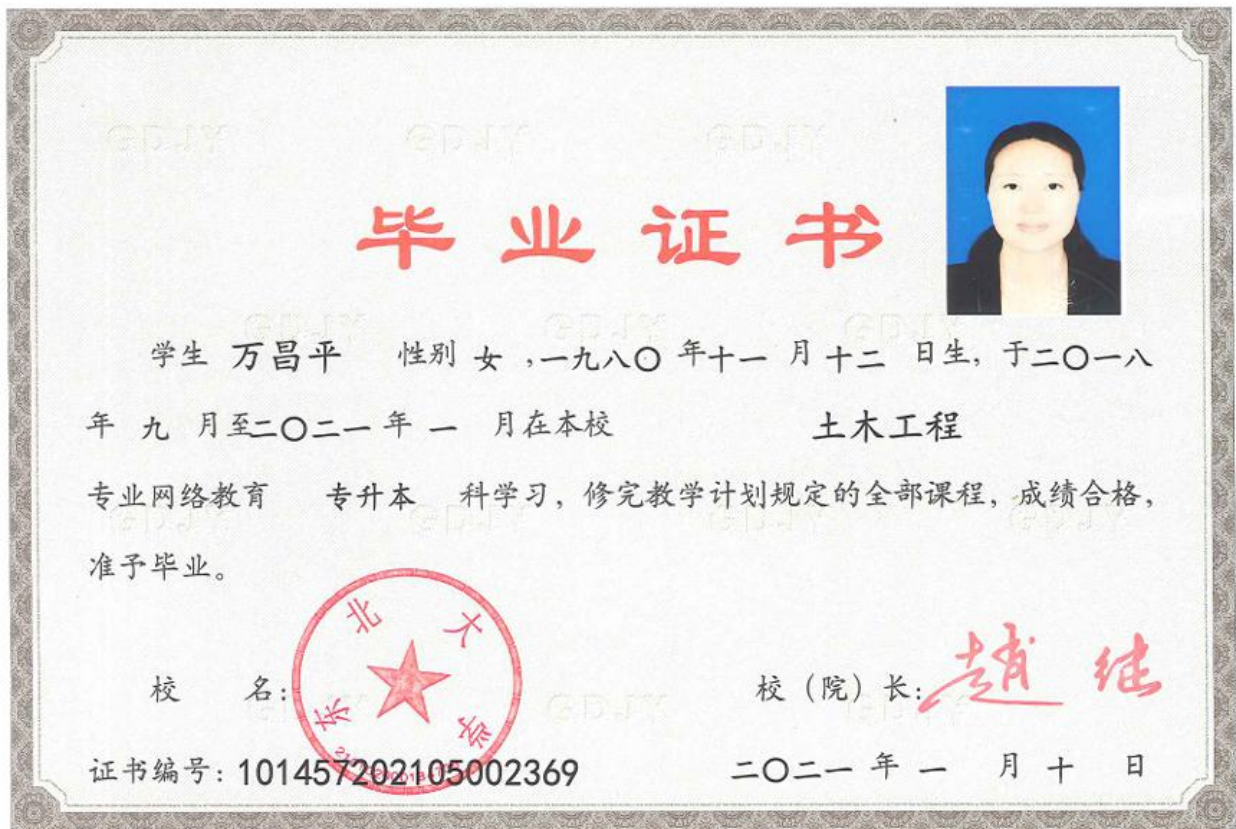 毕业证书
学生 万昌平 性别 女 ,一九八〇 年十一 月 十二 日生, 于二〇一八
年 九 月至二〇二一 年 一 月在本校 土木工程
专业网络教育 专升本 科学习, 修完教学计划规定的全部课程, 成绩合格,
准予毕业。
东北大学
校 名:
校（院）长: 赵继
证书编号: 101457202105002369 二〇二一 年 一 月 十 日
GDJY